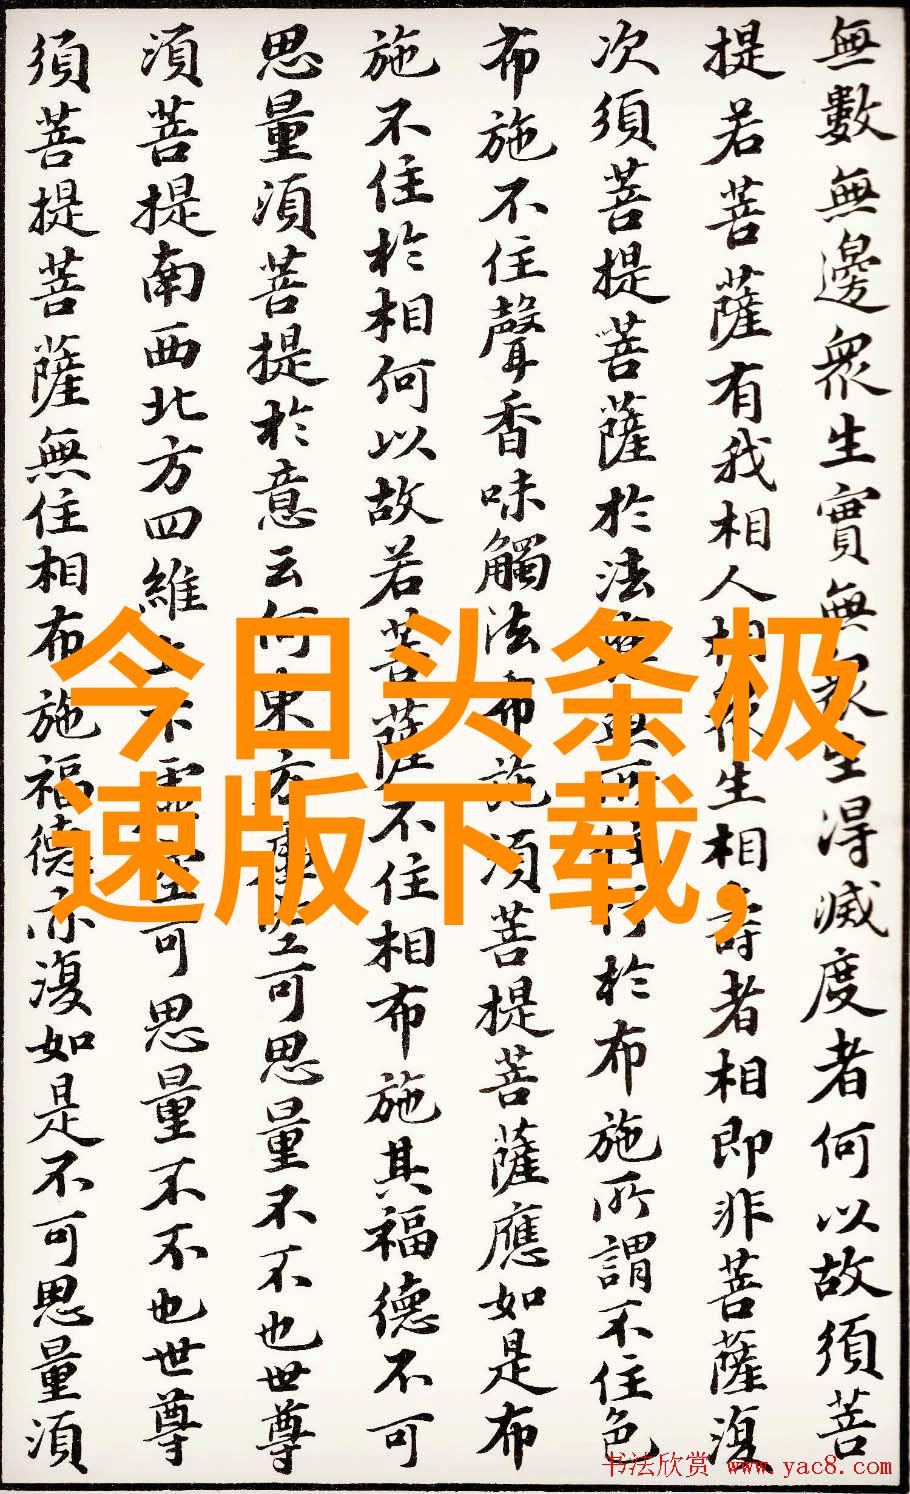 無數無邊眾生實無眾生得滅度者何以故須菩
提若菩薩有我相人相眾生相壽者相即非菩薩復
次須菩提菩薩於法應無所住行於布施所謂不住色
布施不住聲香味觸法布施須菩提菩薩應如是布
施不住於相何以故若菩薩不住相布施其福德不可
思量須菩提於意云何東方虛空可思量不不也世尊
須菩提南西北方四維上下虛空可思量不不也世尊
須菩提菩薩無住相布施福德亦復如是不可思量須
今日头条极
速版下载,
书法欣赏 www.yac8.com